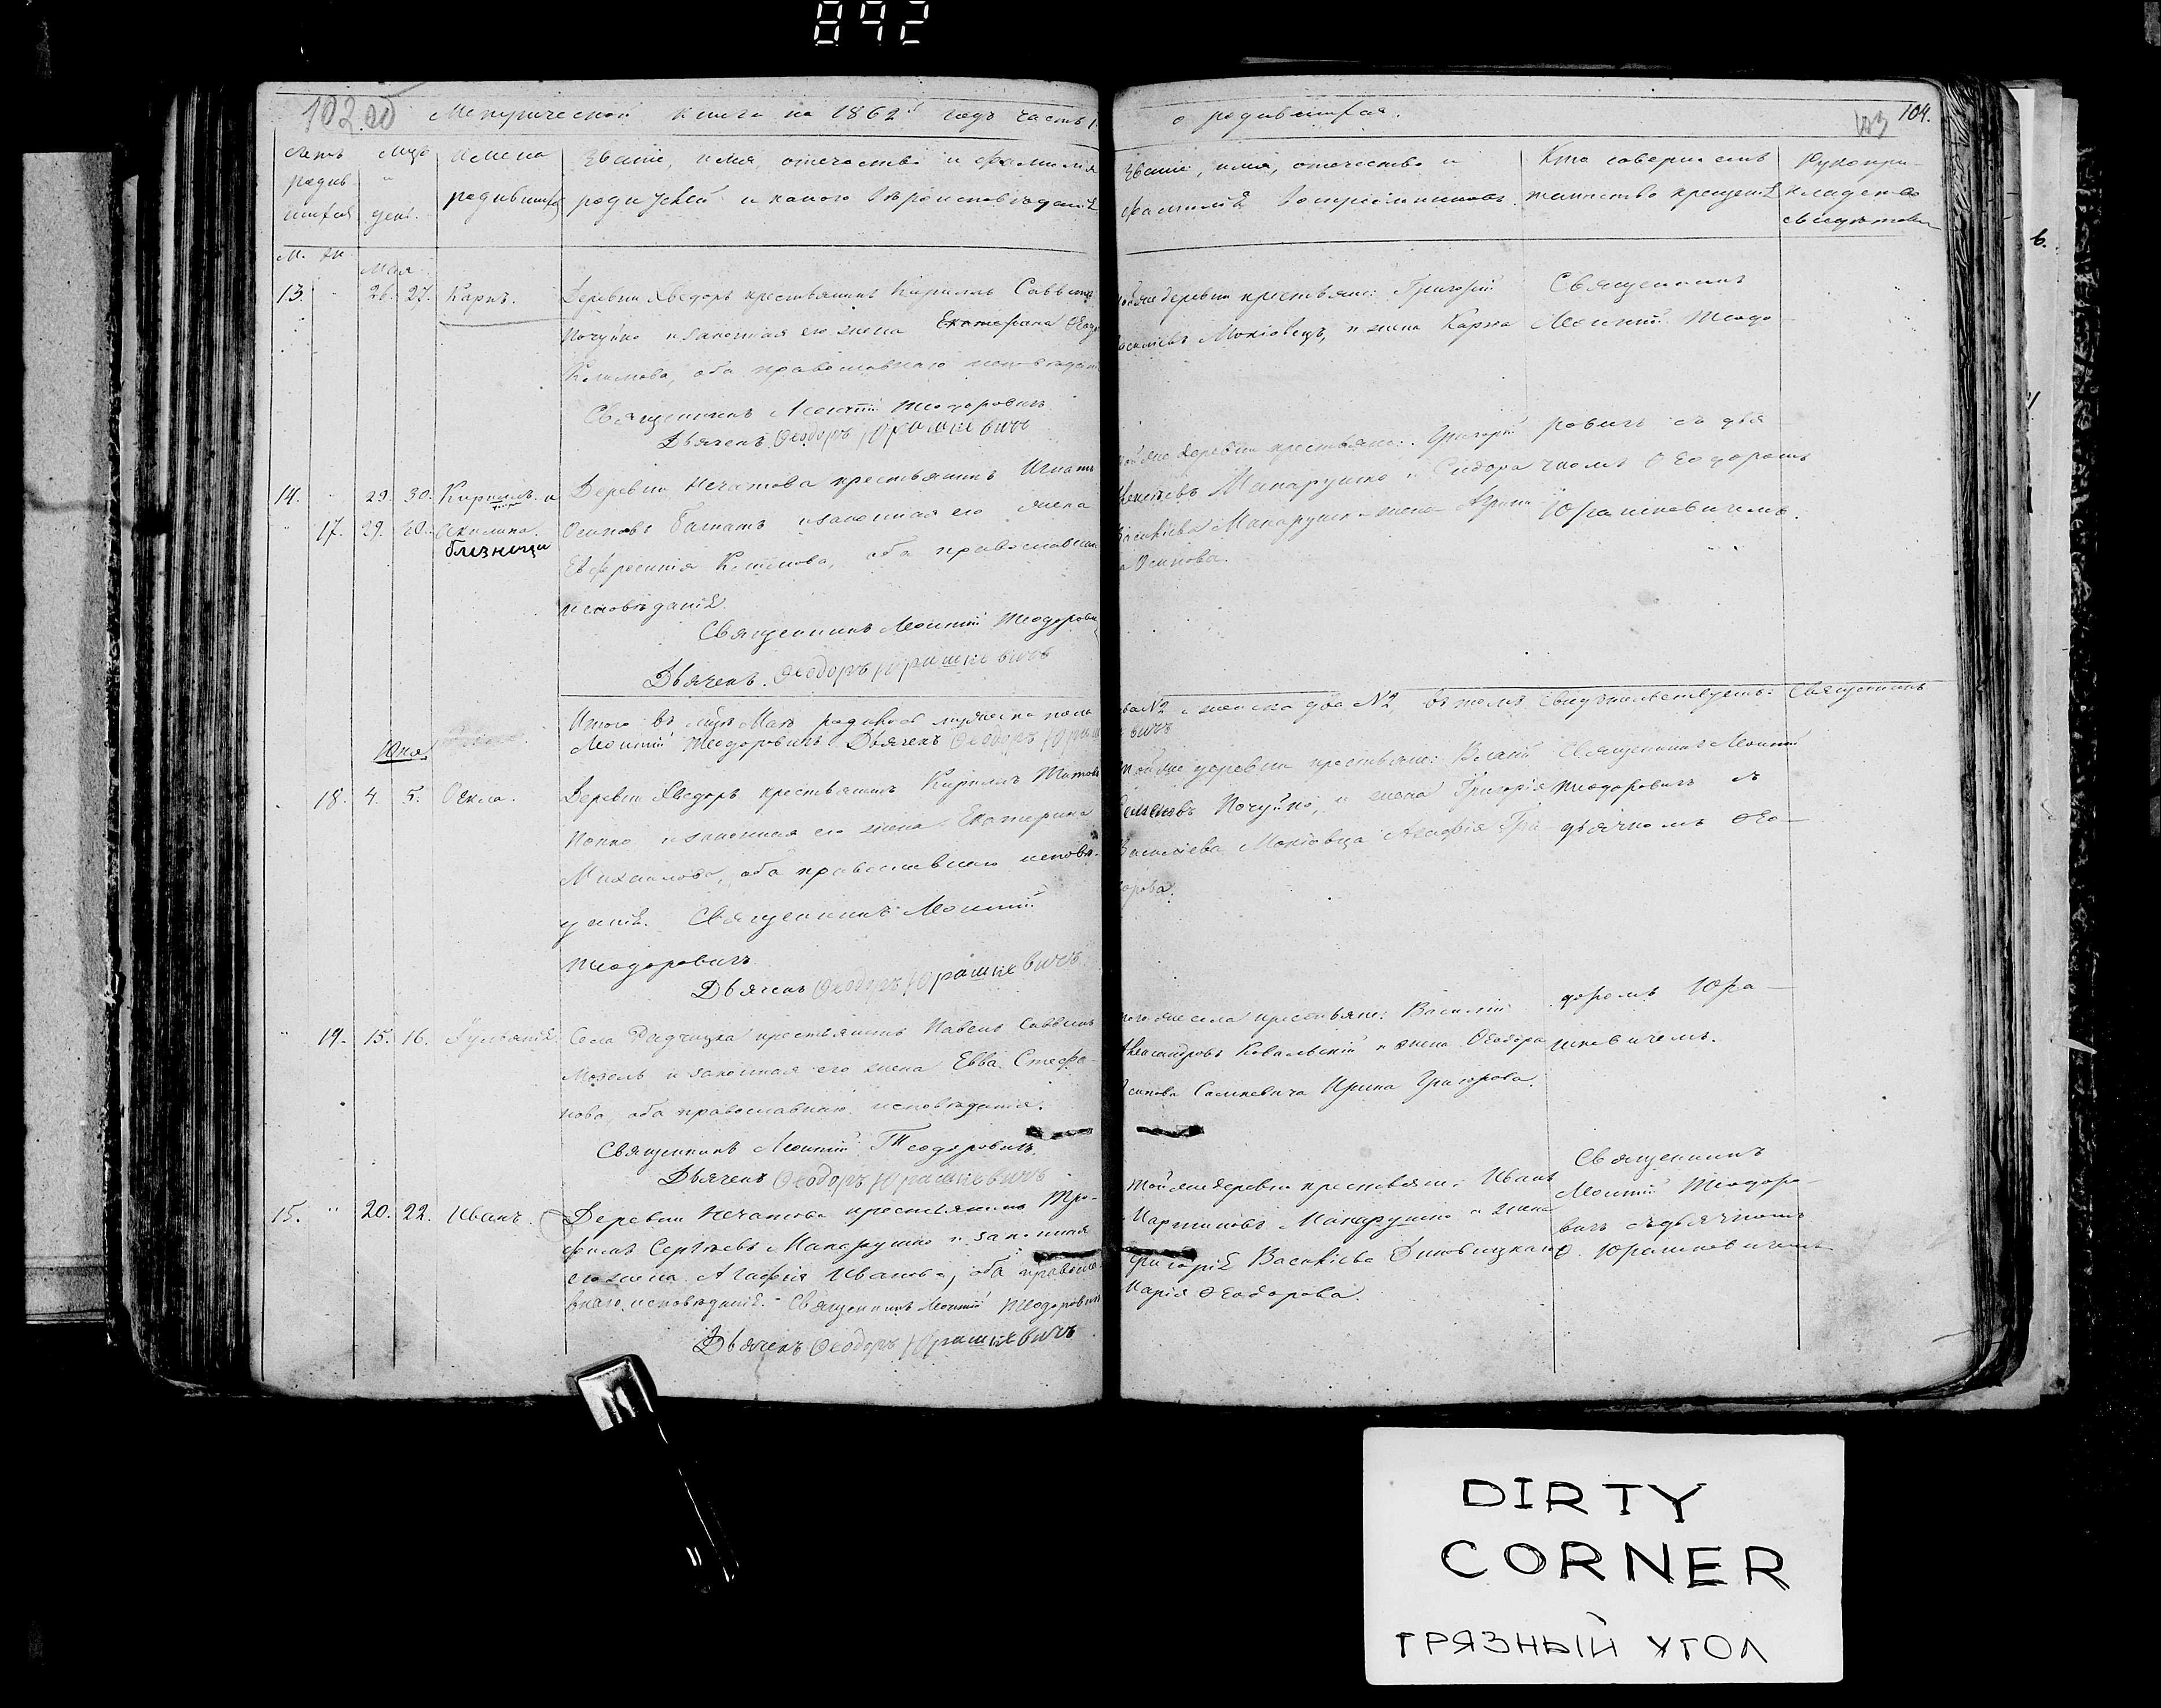 892
102
Метрической книги на 1862й годъ часть 1.
о родившихся.
103
104.
Счетъ родившихся
Мцъ и день.
Имена родившихся
Званіе, имя, отечество и фамилія
родителей и какого вѣроисповѣданія
Званіе, имя, отечество и
фамилія воспріемниковъ.
Кто совершалъ
таинство крещенія
Рукопри-
кладство
свидѣтелей
М. Ж.
Мая
13. 26. 27. Карпъ.
Деревни Хведоръ крестьянинъ Кириллъ Саввинъ
Почуйко и законная его жена
Климова, оба православнаго исповѣданія
Священникъ Леонтій Теодоровичъ
Дьячекъ Ѳеодоръ Юрашкевичъ
той же деревни крестьяне: Григорій
Василіевъ Мокіовецъ, и жена Карпа
Священникъ
Леонтій Теодо-
14. 29. 30. Кириллъ и
17. 29. 30. Акилина.
близнецы
Деревни Нечатова крестьянинъ Игнатъ
Осиповъ Гаматъ и законная его жена
Евфросинія, оба православнаго
исповѣданія.
Священникъ Леонтій Теодорович
Дьячекъ. Ѳеодоръ Юрашкевичъ
той же деревни крестьяне: Григорій
Макарушко и Сидора
Василіева Макарушки жена Ирина
Осипова.
ровичъ съ дья
чкомъ Ѳеодоромъ
Юрашкевичемъ.
Итого въ мцѣ Маѣ родилось мужеска пола
два №2 и женска два №2, въ томъ свидѣтельствуетъ: Священникъ
Леонтій Теодоровичъ Дьячекъ Ѳеодоръ Юрашке
вичъ
Юня
18. 4. 5. Ѳекла.
Деревни Хведоръ крестьянинъ Кириллъ Титовъ
Попко и законная его жена Екатерина
Михаилова, оба православнаго исповѣ-
данія. Священникъ Леонтій
Теодоровичъ
Дьячекъ Ѳеодоръ Юрашкевичъ
той же деревни крестьяне: Власій
Семеновъ Почуйко, и жена Григорія
Василіева Мокіовца Агафія
Священникъ Леонтій
Теодоровичъ съ
дьячкомъ Ѳео-
19. 15. 16. Гуліанія.
Села Радчицка крестьянинъ Павелъ Саввинъ
Мозоль и законная его жена Евва Стефа-
нова оба православнаго исповѣданія.
Священникъ Леонтій Теодоровичъ.
Дьячекъ Ѳеодоръ Юрашкевичъ
того же села крестьяне: Василій
Александровъ Ковальскій и жена Ѳеодора
Осипова Самкевича Ирина Григорова.
доромъ Юра-
шкевичемъ.
15. 20. 22. Иванъ.
Деревни Нечатова крестьянинъ Тро-
фимъ Сергѣевъ Макарушко и законная
его жена Агафія Иванова, оба правосла-
внаго исповѣданія. Священникъ Леонтій Теодоровичъ
Дьячекъ Ѳеодоръ Юрашкевичъ
той же деревни крестьяне: Иванъ
Мартиновъ Макарушко и жена
Григорія Василіева
Марія Ѳеодорова.
Священникъ
Леонтій Теодоро-
вичъ съ дьячкомъ
Ѳ. Юрашкевичемъ
DIRTY
CORNER
ГРЯЗНЫЙ УГОЛ